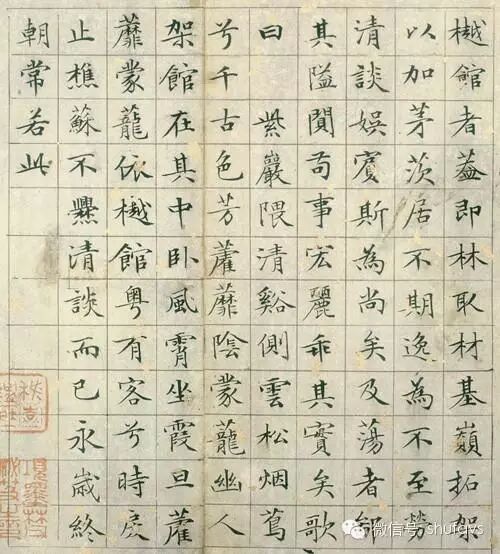 樾館者葢即林取材基巔拓架
以加茅茨居不期逸為不至勞
清談娯賓斯為尚矣及蕩者鄙
其隘閴苟事宏麗乖其實矣歌
曰 紫巖隈清谿側雲松烟蔦
兮千古色芳藿蘼陰蒙蘢幽人
架館在其中卧風霄坐霞旦藿
蘼蒙蘢依樾館粤有客兮時戾
止樵蘇不爨清談而已永歲終
朝常若此
微信号: shufqvs